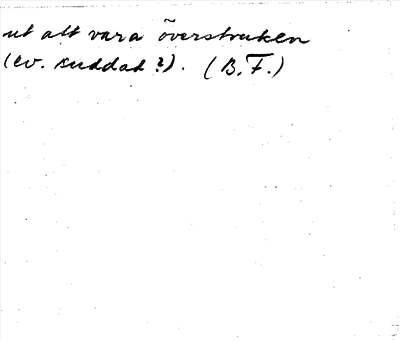 ut att vara överstruken
(ev. suddad?). (B.F.)